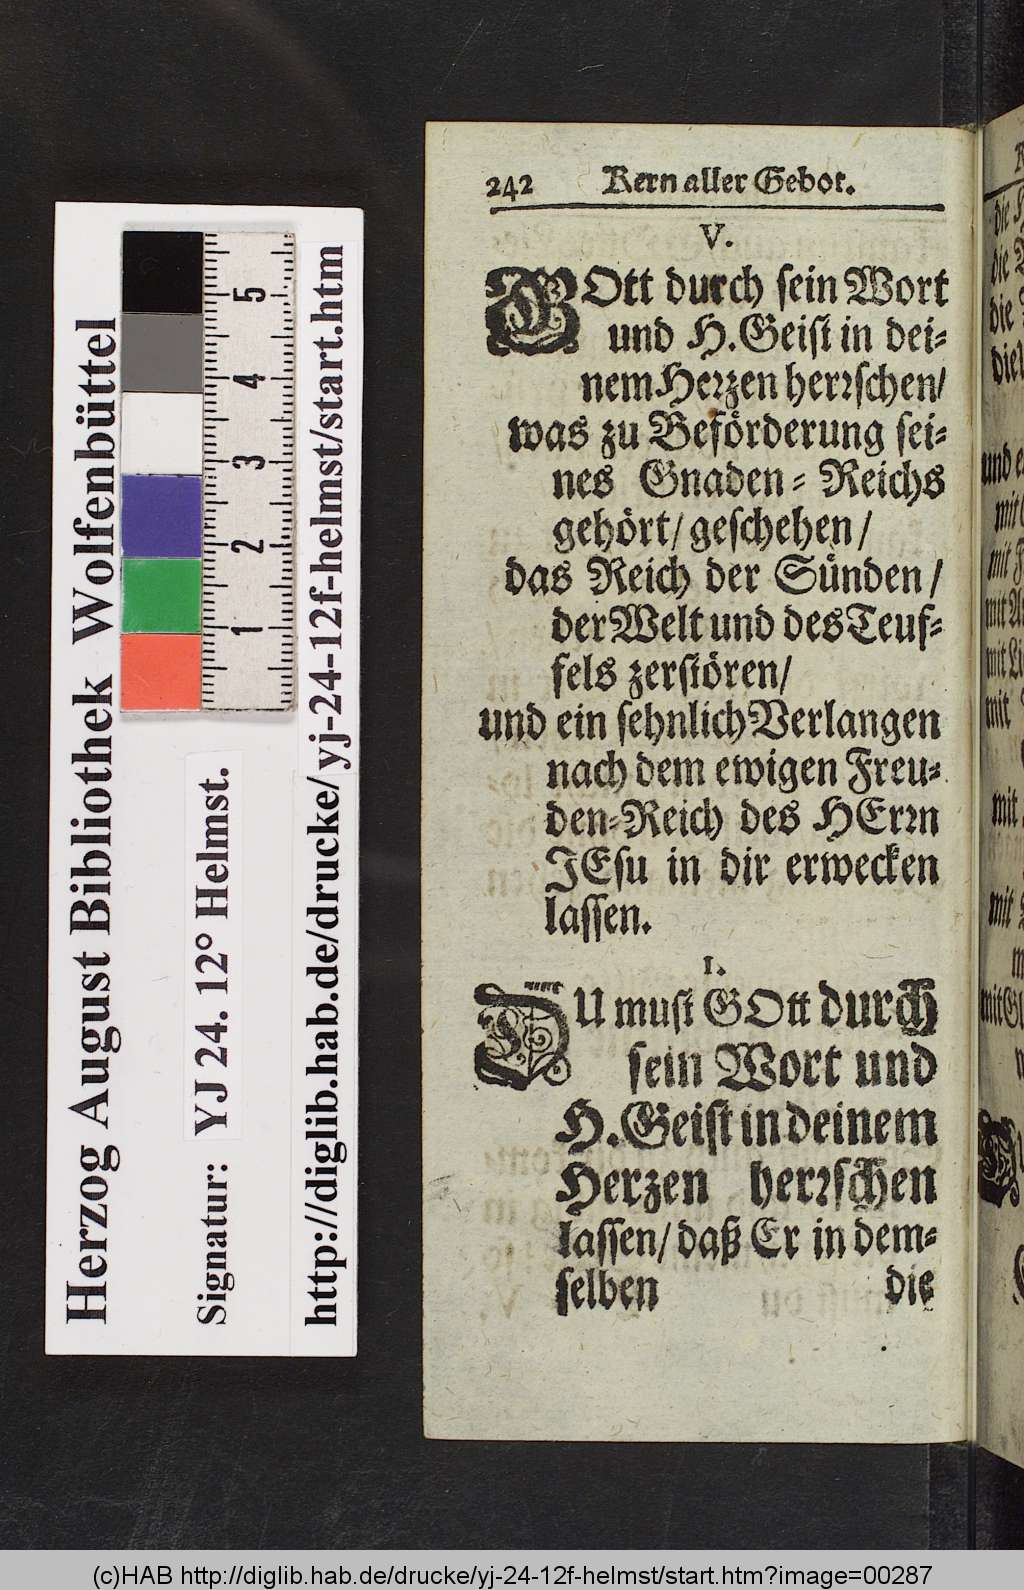 242 Kern aller Gebot.
V.
GOtt durch sein Wort
und H. Geist in dei-
nem Herzen herrschen/
was zu Beförderung sei-
nes Gnaden-Reichs
gehört/ geschehen/
das Reich der Sünden/
der Welt und des Teuf-
fels zerstören/
und ein sehnlich Verlangen
nach dem ewigen Freu-
den-Reich des HErrn
JEsu in dir erwecken
lassen.
1.
DU must GOtt durch
sein Wort und
H. Geist in deinem
Herzen herrschen
lassen/ daß Er in dem-
selben die
Herzog August Bibliothek Wolfenbüttel
Signatur: YJ 24. 12° Helmst.
http://diglib.hab.de/drucke/yj-24-12f-helmst/start.htm
1 2 3 4 5
die
die
die
und
mit
mit
mit
mit
mit
mit
mit
mit
(c)HAB http://diglib.hab.de/drucke/yj-24-12f-helmst/start.htm?image=00287